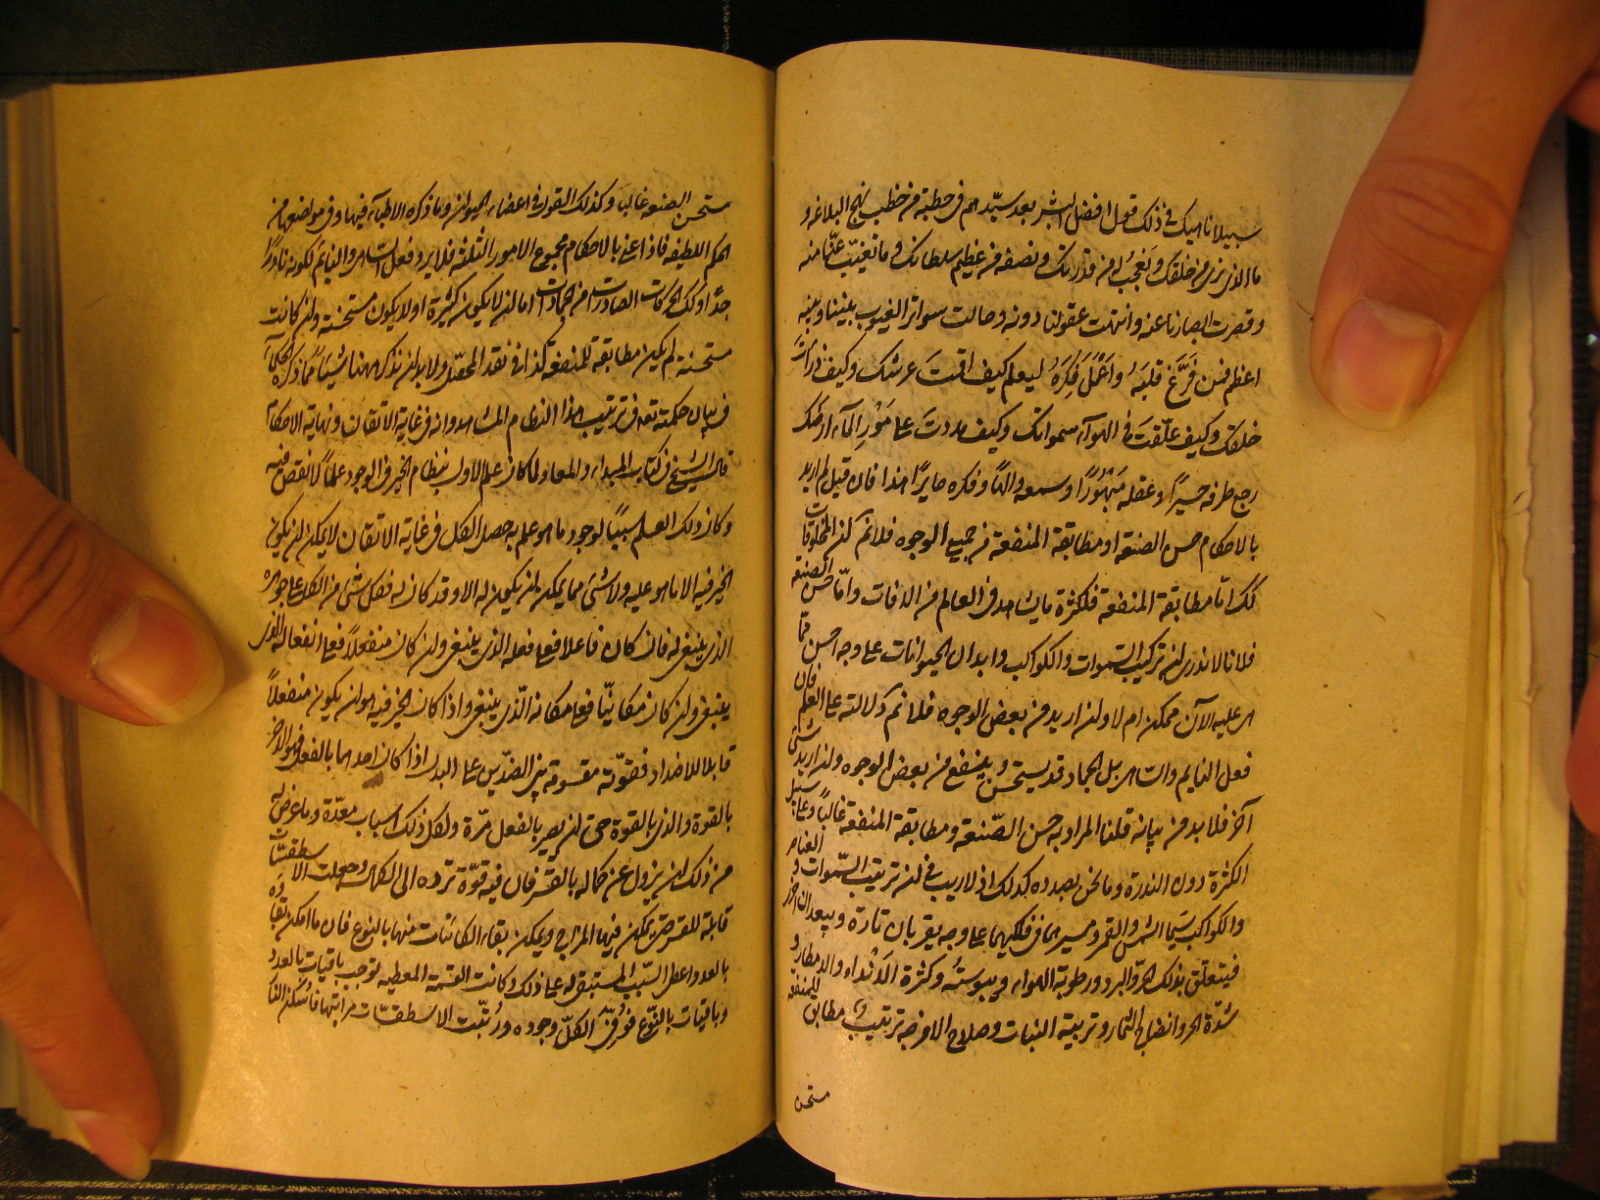 سبيلا ناهيك في ذلك قول افضل البشر بعد سيّدهم في خطبة من خطب نهج البلاغه و
ما الذى نرى من خلقك و نعجب له من قدرتك و نصفه من عظيم سلطانك و ما تغيّب عنّا منه
و قصرت ابصارنا عنه و انتهت عقولنا دونه و حالت سواتر الغيوب بيننا و بينه
اعظم فمن فَرَّغ قلبَهُ و اَعْمَلَ فِكرَهُ ليعلم كيف اقمتَ عرشك و كيف ذرأتَ
خلقك و كيف علّقتَ في الهوآء سمواتك و كيف مددتَ على مَوْرِ الماء ارضك
رجع طرفه حسيرًا و عقله مَبْهُورًا و سمعه والهًا و فكره حايرًا هذا فان قيل ان اريد
بالاحكام حسن الصنعة او مطابقة المنفعة من جميع الوجوه فلا نم ان المخلوقات
كك امّا مطابقة المنفعة فلكثرة ما يشاهد في العالم من الافات و امّا حسن الصنعة
فلانا لا ندرى ان تركيب السموات و الكواكب و ابدان الحيوانات على وجه احسن ممّا
هى عليه الآن ممكن ام لا و ان اريد من بعض الوجوه فلا نم دلالته على العلم فان
فعل النايم و الساهى بل الجماد قد يستحسن و ينتفع من بعض الوجوه و ان اريد شئ
آخر فلا بد من بيانه قلنا المراد به حسن الصّنعة و مطابقة المنفعة غالبًا و على سبيل
الكثرة دون الندرة و ما نحن بصدده كذلك اذ لا ريب في ان ترتيب السّموات و العناصر
و الكواكب سيّما الشمس و القمر و مسيرهما في فلكيهما على وجه يقربان تارة و يبعدان اخرى
فيتعلّق بذلك الحرّ و البرد و رطوبة الهواء و يبوسته و كثرة الانداء و الامطار و
شدة الحر و انضاج الثمار و تربية النبات و صلاح الامزجة ترتيب مطابق للمنفعة
مستحسن
مستحسن الصنعه غالبًا و كذلك القول في اعضاء الحيوان و ما ذكره الاطباء فيها و في مواضعها من
الحكم اللطيفه فاذا عنى بالاحكام مجموع الامور الثلثة فلا يرد فعل الساهى و النائم لكونه نادرًا
جدًّا و كك الحركات الصادرات من الجمادات اما ان لا يكون كثيرة او لا يكون مستحسنة و ان كانت
مستحسنة لم يكن مطابقة للمنفعة كذا في نقد المحصّل و لا بد ان نذكر ههنا شيئًا ممّا ذكره الحكمآء
في بيان حكمته تعه في ترتيب هذا النظام المشاهد و انه في غاية الاتقان و نهاية الاحكام
قال الشيخ في كتاب المبداء و المعاد و لما كان علم الاول بنظام الخير في الوجود علمًا لا نقص فيه
و كان ذلك العلم سببًا لوجود ما هو علم به حصل الكل في غاية الاتقان لا يمكن ان يكون
الخير فيه الا ما هو عليه و لا شئ مما يمكن ان يكون له الا و قد كان له فكل شئ من الكل على جوهره
الذى ينبغى له فان كان فاعلا فعلى فعله الذى ينبغى و ان كان منفعلاً فعلى انفعاله الذى
ينبغى و ان كان مكانيًّا فعلى مكانه الّذى ينبغى و اذا كان الخير فيه هو ان يكون منفعلاً
قابلا للاضداد فقوّته مقسومة بين الضدّين على البدل اذا كان احدهما بالفعل فهو الاخر
بالقوة و الذى بالقوة حق ان يصير بالفعل مرّة و لكل ذلك اسباب معدّة و ما عرض له
من ذلك ان يزول عن كماله بالقسر فان فيه قوّة ترده الى الكمال و جعلت الاسطقسّات
قابلة للقسر حتى يمكن فيها المزاج و يمكن بقاء الكائنات منها بالنوع فان ما امكن بقاؤه
بالعدد اعطى السّبب المستبقى له على ذلك و كانت القسمة العقليه توجب باقيات بالعدد
و باقيات بالنّوع فَوُفّى الكلّ وجوده و رُتّبت الاسطقسّات مراتبها فاُسكن النار